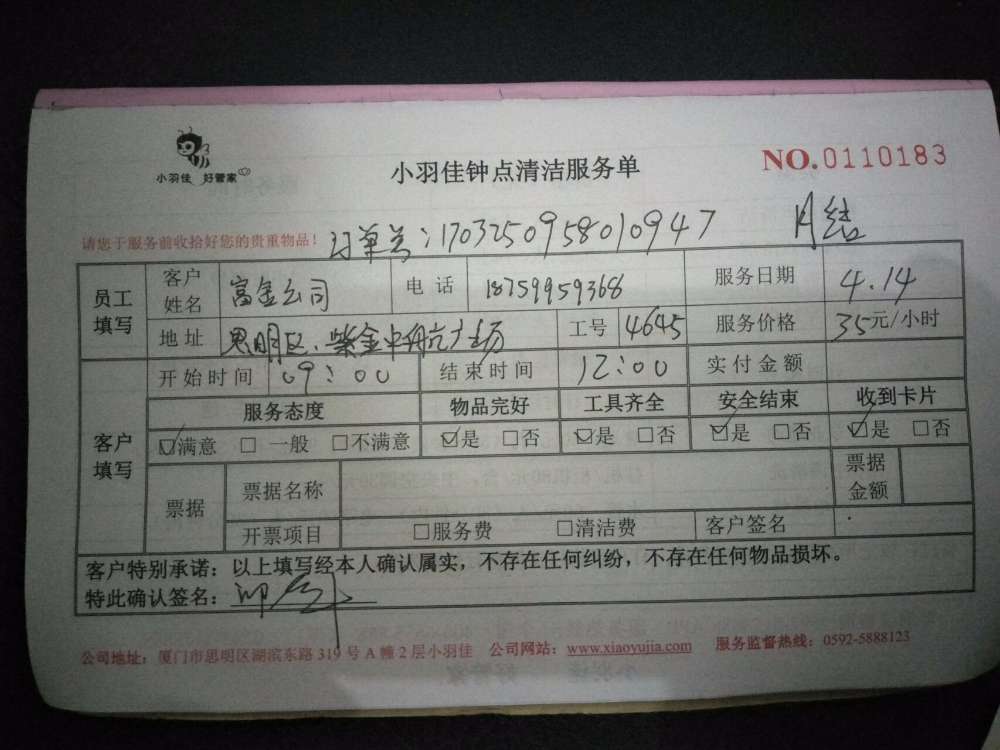 小羽佳 好管家
小羽佳钟点清洁服务单
NO.0110183
请您于服务前收拾好您的贵重物品!
订单号:170325095801 0947 月结
员工填写 客户姓名 富金公司 电话 18759959368 服务日期 4.14
地址 思明区、紫金中航广场 工号 4645 服务价格 35元/小时
客户填写 开始时间 09:00 结束时间 12:00 实付金额
服务态度 物品完好 工具齐全 安全结束 收到卡片
☑满意 □一般 □不满意 ☑是 □否 ☑是 □否 ☑是 □否 ☑是 □否
票据 票据名称 票据金额
开票项目 □服务费 □清洁费 客户签名
客户特别承诺:以上填写经本人确认属实,不存在任何纠纷,不存在任何物品损坏。
特此确认签名:
公司地址:厦门市思明区湖滨东路319号A幢2层小羽佳 公司网站:www.xiaoyujia.com 服务监督热线:0592-5888123